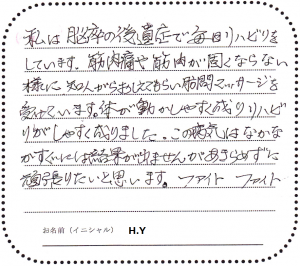 私は脳卒の後遺症で毎日リハビリを
しています。筋肉痛や筋肉が固くならない
様に知人からおしえてもらい訪問マッサージを
受けています。体が動かしやすく成りリハビ
リがしやすく成りました。この病気はなかな
かすぐには結果が出ませんがあきらめずに
頑張りたいと思います。ファイト ファイト
お名前（イニシャル） H.Y